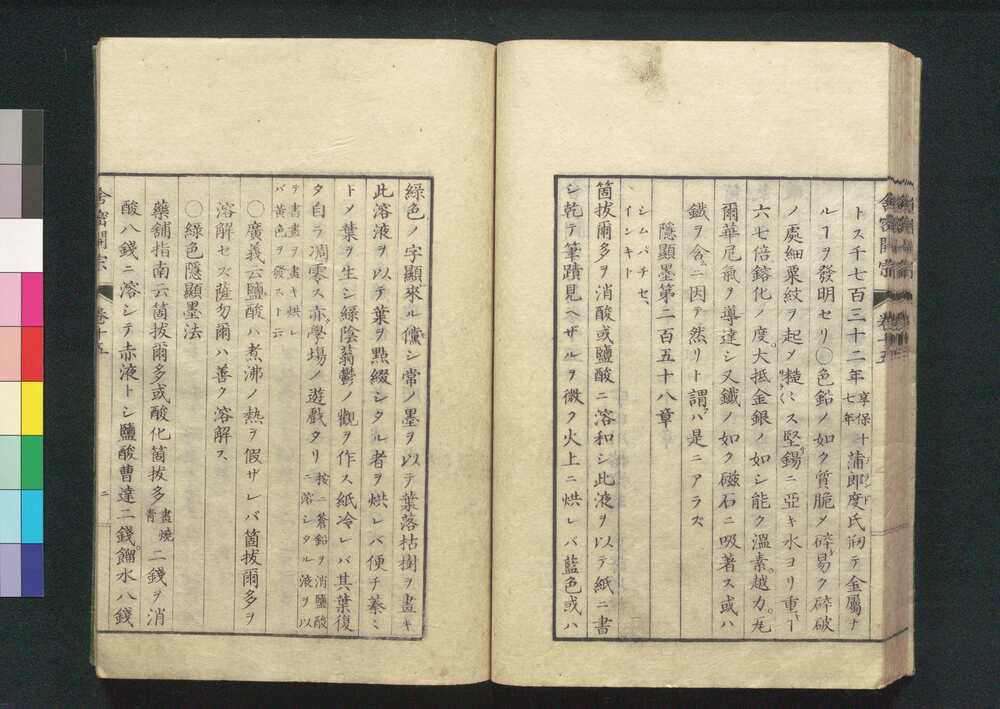 舎密開宗 巻十五
トス千七百三十二年享保十七年蒲郎度氏始テ金屬ナ
ルヿヲ發明セリ〇色鉛ノ如ク質脆メ碎易ク碎破
ノ處細粟紋ヲ起メ糙く堅鍚ニ亞キ水ヨリ重キヿ
六七倍鎔化ノ度大抵金銀ノ如シ能ク溫素越力尼
爾華尼氣ヲ導達シ又鐵ノ如ク磁石ニ吸著ス或ハ
鐵ヲ含ニ因テ然リト謂ハ是ニアラス
隱顯墨第二百五十八章
シムパチセ、
インキト
箇拔爾多ヲ消酸或鹽酸ニ溶和シ此液ヲ以テ紙ニ書
シ乾テ筆蹟見ヘザルヲ微ク火上ニ烘レバ藍色或ハ
綠色ノ字顯來ル儻シ常ノ墨ヲ以テ葉落枯樹ヲ畫キ
此溶液ヲ以テ葉ヲ點綴シタル者ヲ烘レバ便チ蓁々
トメ葉ヲ生シ綠陰蓊鬱ノ觀ヲ作ス紙冷レバ其葉復
タ自ラ凋零ス亦學場ノ遊戲タリ按ニ蒼鉛ヲ消鹽酸ニ溶シタル液ヲ以
テ書畫ヲ畫キ烘レバ黃色ヲ發スト云
〇廣義云鹽酸ハ煮沸ノ熱ヲ假ザレバ箇拔爾多ヲ
溶解セズ薩勿爾ハ善ク溶解ス
〇綠色隱顯墨法
藥舖指南云箇拔爾多或酸化箇拔多畫燒靑二錢ヲ消
酸八錢ニ溶シテ赤液トシ鹽酸曹達二錢餾水八錢
舎密開宗 巻十五 二